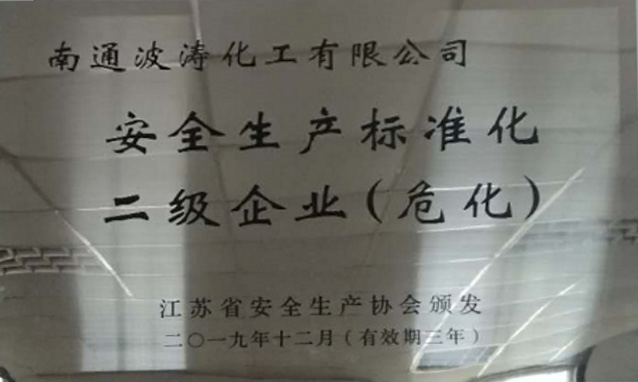 南通波涛化工有限公司
安全生产标准化
二级企业(危化)
江苏省安全生产协会颁发
二〇一九年十二月(有效期三年)